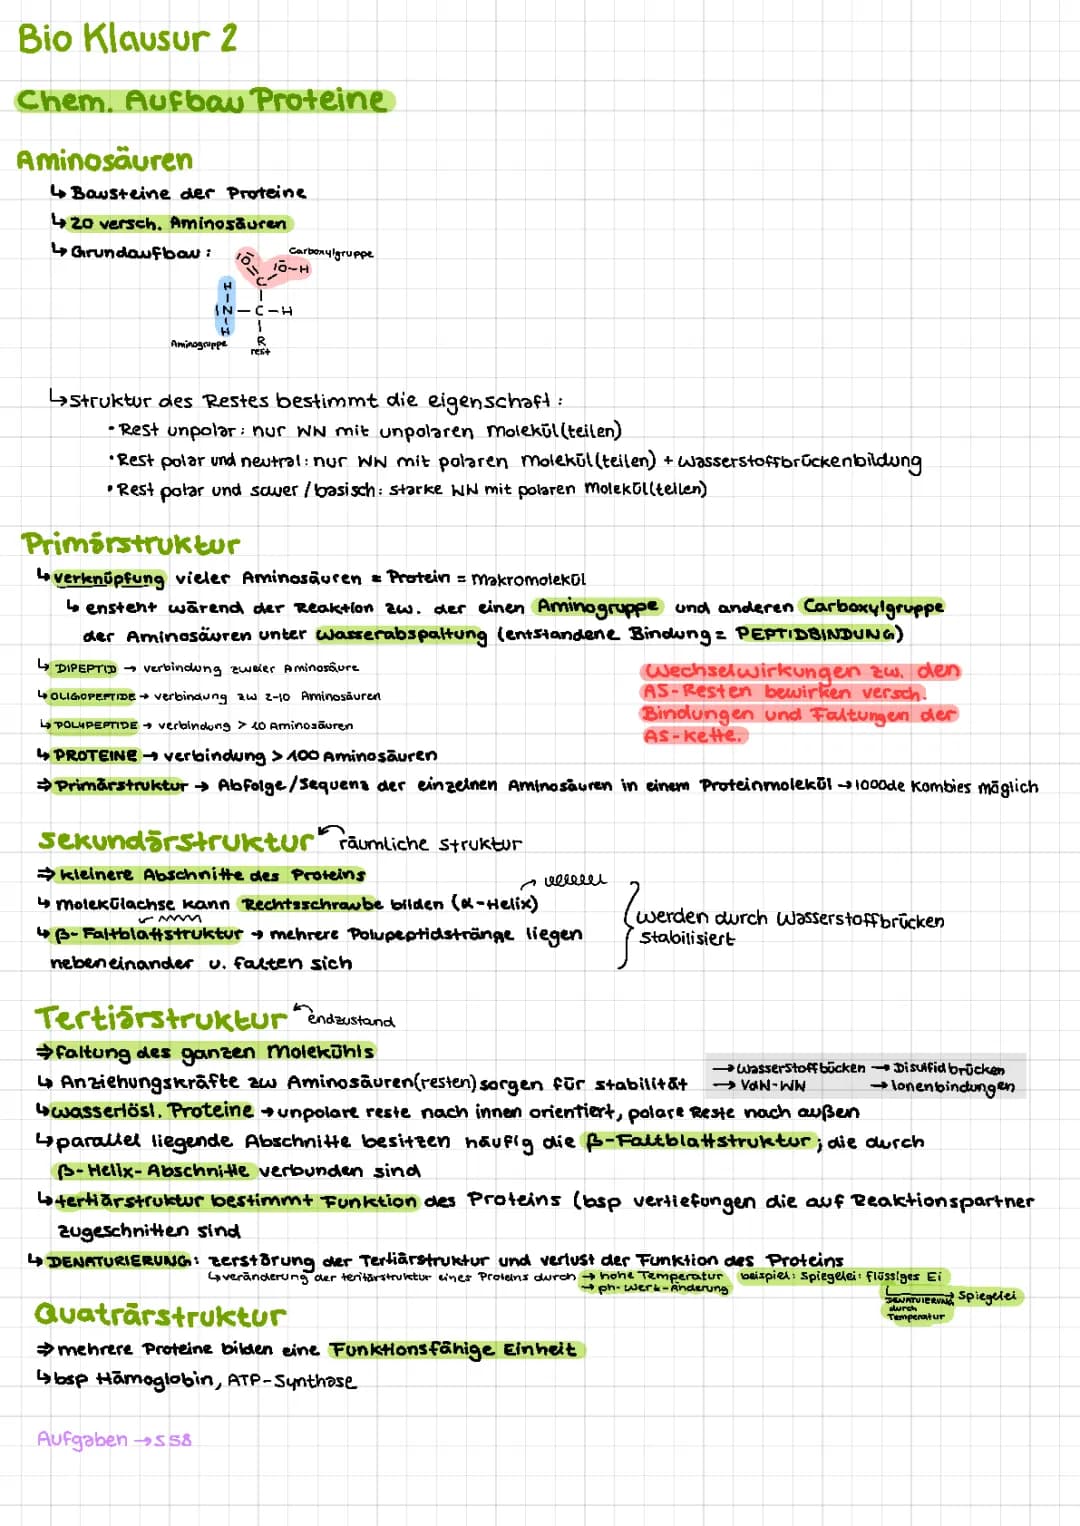 Bio Klausur 2
Chem. Aufbau Proteine
Aminosäuren
↳ Bausteine der Proteine
↳ 20 versch. Aminosäuren
↳ Grundaufbau:
Carboxylgruppe
IO̅ IO̅-H
C
H
IN-C-H
H R
Aminogruppe rest
↳ Struktur des Restes bestimmt die eigenschaft:
• Rest unpolar: nur WW mit unpolaren Molekül(teilen)
• Rest polar und neutral: nur WW mit polaren Molekül(teilen) + Wasserstoffbrückenbildung
• Rest polar und sauer/basisch: starke WW mit polaren Molekül(teilen)
Primärstruktur
↳ verknüpfung vieler Aminosäuren = Protein = Makromolekül
↳ ensteht wärend der Reaktion zw. der einen Aminogruppe und anderen Carboxylgruppe
der Aminosäuren unter Wasserabspaltung (entstandene Bindung = PEPTIDBINDUNG)
↳ DIPEPTID → verbindung zweier Aminosäure
↳ OLIGOPEPTIDE → verbindung zw 2-10 Aminosäuren
↳ POLYPEPTIDE → verbindung > 10 Aminosäuren
↳ PROTEINE → verbindung > 100 Aminosäuren
Wechselwirkungen zw. den
AS-Resten bewirken versch.
Bindungen und Faltungen der
AS-Kette.
⇒ Primärstruktur → Abfolge/Sequenz der einzelnen Aminosäuren in einem Proteinmolekül → 1000de Kombies möglich
Sekundärstruktur räumliche struktur
⇒ kleinere Abschnitte des Proteins
↳ Molekülachse kann Rechtsschraube bilden (α-Helix)
↳ β-Faltblattstruktur → mehrere Polupeptidstränge liegen
nebeneinander u. falten sich
werden durch Wasserstoffbrücken
stabilisiert
Tertiärstruktur endzustand
⇒ faltung des ganzen Molekühls
↳ Anziehungskräfte zw Aminosäuren(resten) sorgen für stabilität
→ Wasserstoffbücken → Disulfidbrücken
→ VdW-WW → Ionenbindungen
↳ wasserlösl. Proteine → unpolare reste nach innen orientiert, polare Reste nach außen
↳ parallel liegende Abschnitte besitzen häufig die β-Faltblattstruktur; die durch
β-Helix-Abschnitte verbunden sind
↳ tertiärstruktur bestimmt Funktion des Proteins (bsp vertiefungen die auf Reaktionspartner
zugeschnitten sind
↳ DENATURIERUNG: zerstörung der Tertiärstruktur und verlust der Funktion des Proteins
↳ veränderung der teritärstruktur eines Proteins durch → hohe Temperatur
→ ph-Wert-Änderung
beispiel: Spiegelei: flüssiges Ei
→ Spiegelei
DENATUIERUNG
durch
Temperatur
Quaträrstruktur
⇒ mehrere Proteine bilden eine Funktionsfähige Einheit
↳ bsp Hämoglobin, ATP-Synthase
Aufgaben → S 58